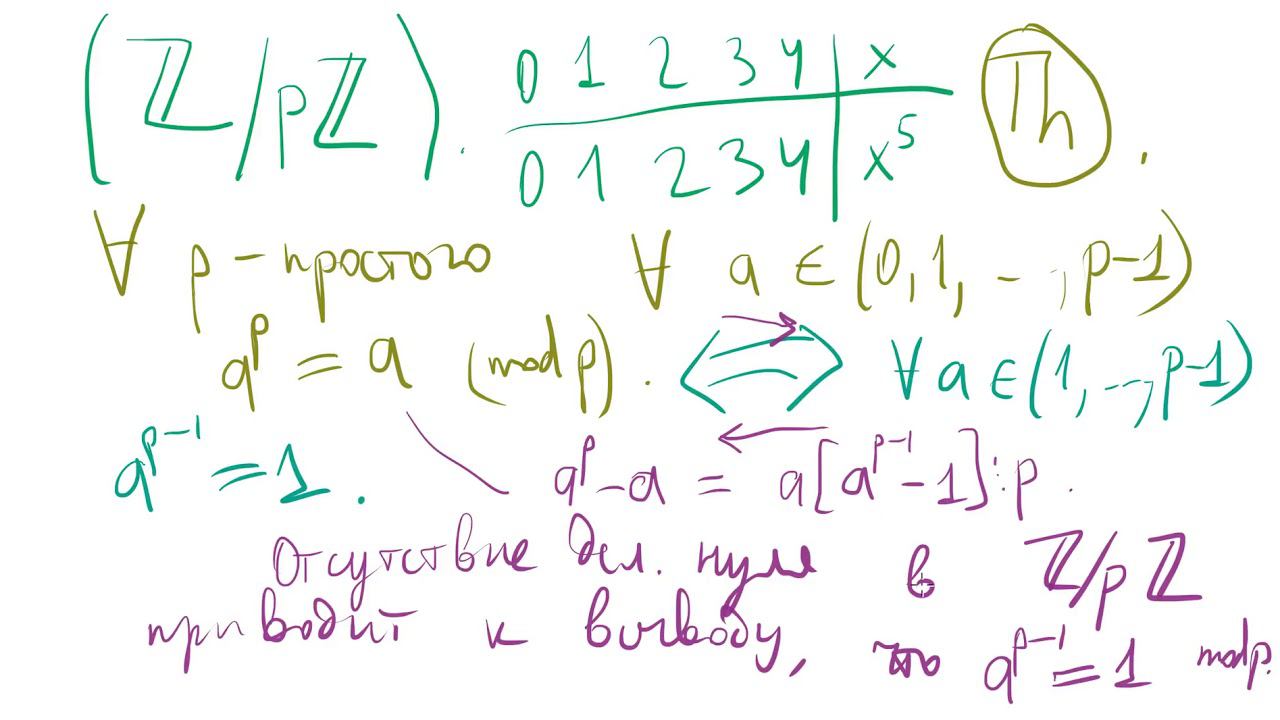 (ℤ/pℤ). 0 1 2 3 4 | x Th.
0 1 2 3 4 | x⁵
∀ p - простого ∀ a ∈ (0, 1, ..., p-1)
aᵖ = a (mod p). ⟺ ∀ a ∈ (1, ..., p-1)
aᵖ⁻¹ = 1. aᵖ - a = a[aᵖ⁻¹ - 1] ⋮ p.
Отсутствие дел. нуля в ℤ/pℤ
приводит к выводу, что aᵖ⁻¹ = 1 mod p.